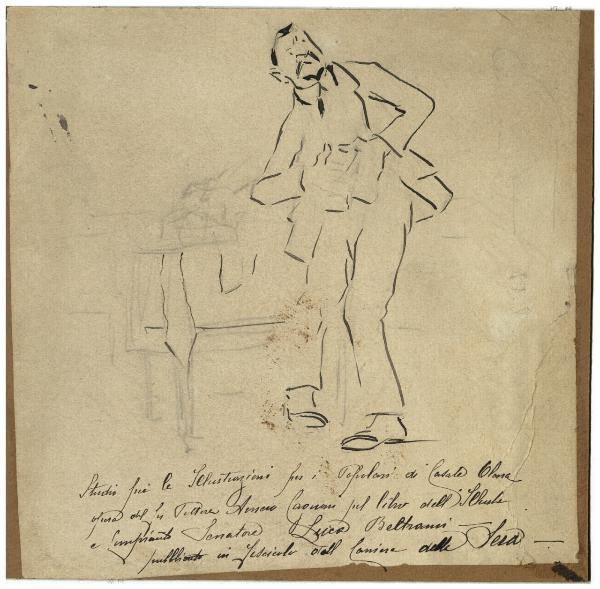 Studio per le Illustrazioni per i Popolari di Casate Olona
opera del Pittore per libro dell'Illustre
e compianto Senatore Luca Beltrami -
pubblicato in fascicolo dal Corriere della Sera -